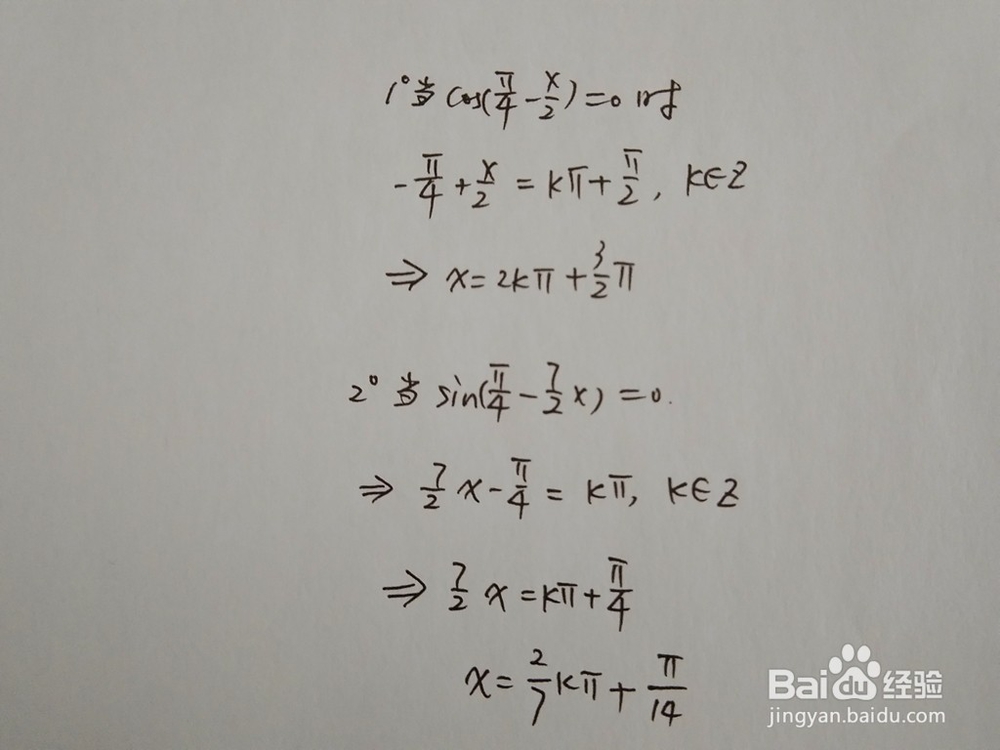 1° 当 cos(π/4 - x/2) = 0 时
-π/4 + x/2 = kπ + π/2, k∈Z
⇒ x = 2kπ + 3/2 π
2° 当 sin(π/4 - 7/2 x) = 0.
⇒ 7/2 x - π/4 = kπ, k∈Z
⇒ 7/2 x = kπ + π/4
x = 2/7 kπ + π/14
Baidu 经验
jingyan.baidu.com